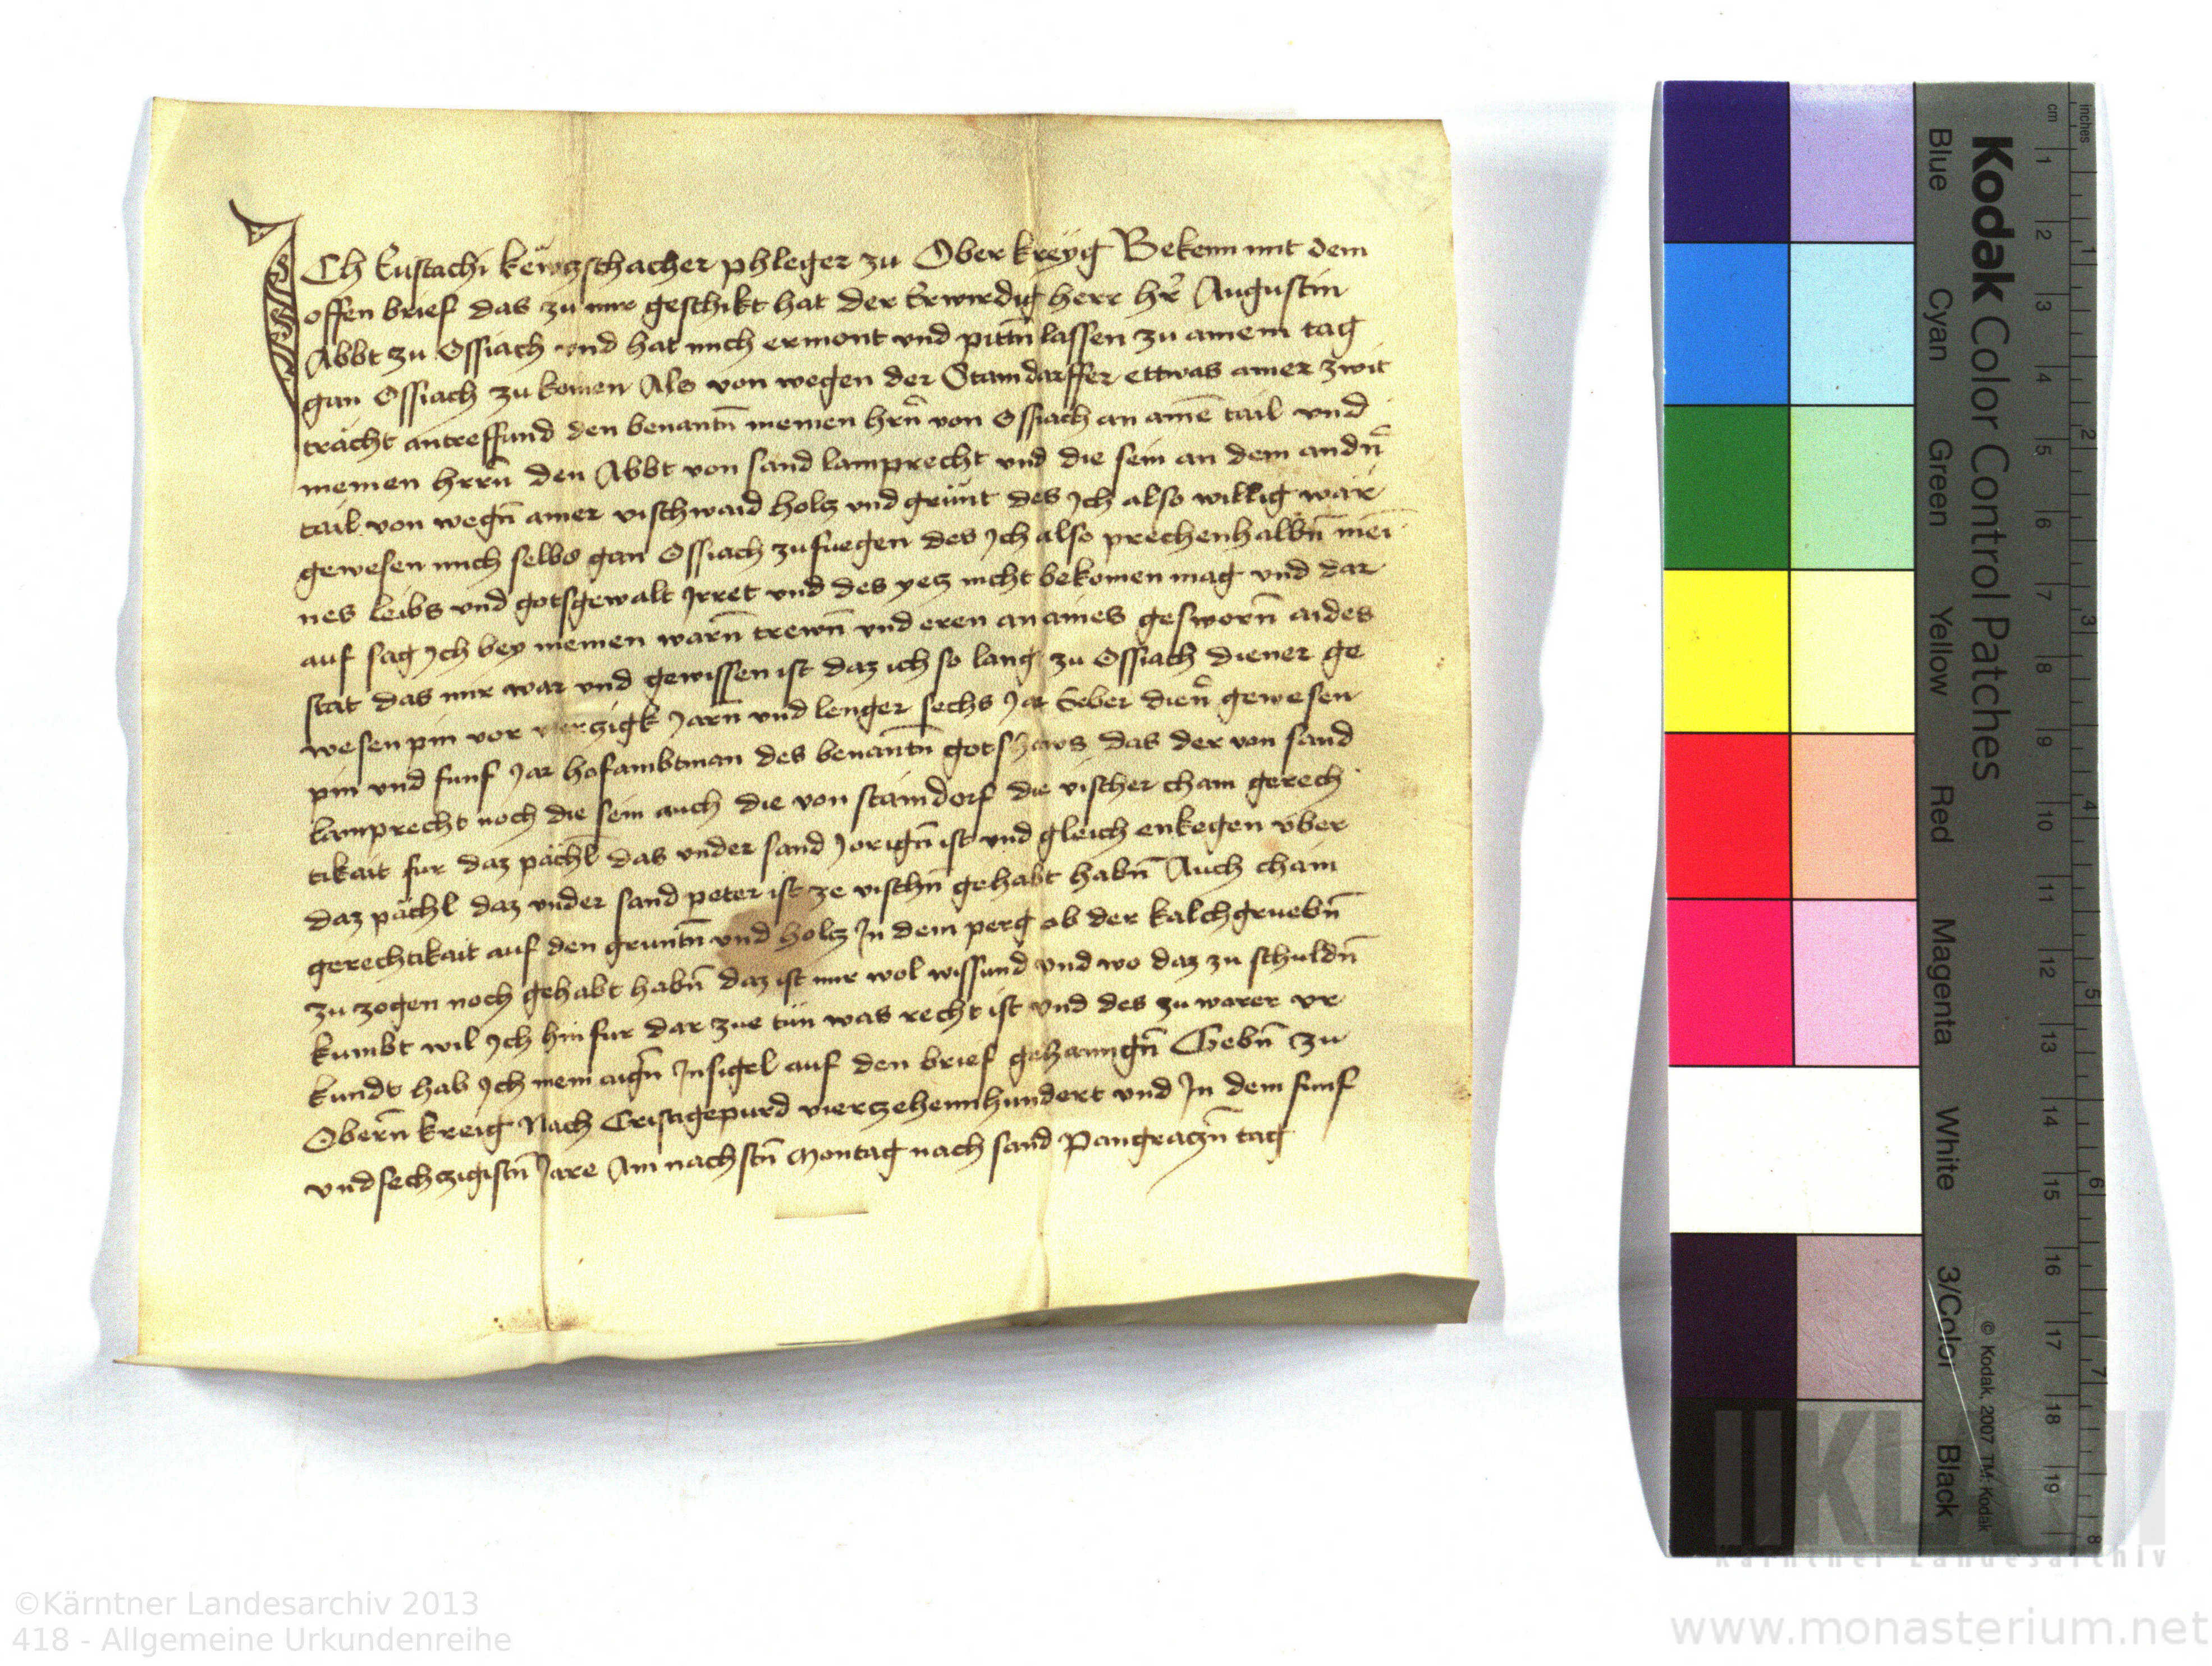 ICh Eustachi kewtzschacher phleger zu Ober kreyg Bekenn mit dem
offen brief das zu mir geschikt hat der Erwirdig herr hr̃ Augustin
Abbt zu Ossiach vnd hat mich ermont vnd pittñ lassen zu ainem tag
gan Ossiach zu komen Als von wegen der Staindarffer ettwas ainer zwit
trächt antreffund den benantñ meinen hrñ von Ossiach an ainē tail vnd
meinen hrrñ den Abbt von sand lamprecht vnd die sein an dem andñ
tail von wegñ ainer vischwaid holtz vnd grünt des Ich also willig wär
gewesen mich selbs gan Ossiach zufuegen des Ich also prechenhalbñ mei
nes leibs vnd gotsgewalt Irret vnd des yetz nicht bekomen mag vnd dar
auf sag Ich bey meinen warñ trewñ vnd eren an aines gesworñ aides
stat das mir war vnd gewissen ist daz ich so lang zu Ossiach diener ge
wesen pin vor vierzigk Jarñ vnd lenger sechs Jar Seber dieñ gewesen
pin vnd funf Jar hofambtman des benantñ gotshaws das der von sand
lamprecht noch die sein auch die von staindorf die vischer cham gerech
tikait fur daz pächl das vnder sand Jorigñ ist vnd gleich enkegen vber
daz pächl daz vnder sand peter ist ze vischñ gehabt habñ Auch chain
gerechtikait auf den gruntñ vnd holtz In dem perg ob der kalchgruebñ
zu zogen noch gehabt habñ daz ist mir wol wissund vnd wo daz zu schuldñ
kumbt wil Ich hin fur dar zue tün was recht ist vnd des zu warer vr
kundt hab Ich mein aigñ Insigel auf den brief gehanngñ Gebñ zu
Oberñ kreig Nach Cristi gepurd vierczehennhundert vnd In dem funf
vnd sechczigistñ Jare Am nachstñ Montag nach sand Pangraczñ tag
Kodak Color Control Patches
Blue Cyan Green Yellow Red Magenta White 3/Color Black
© Kodak, 2007 TM: Kodak
inches 1 2 3 4 5 6 7 8
cm 1 2 3 4 5 6 7 8 9 10 11 12 13 14 15 16 17 18 19
Kärntner Landesarchiv
©Kärntner Landesarchiv 2013
418 - Allgemeine Urkundenreihe
www.monasterium.net